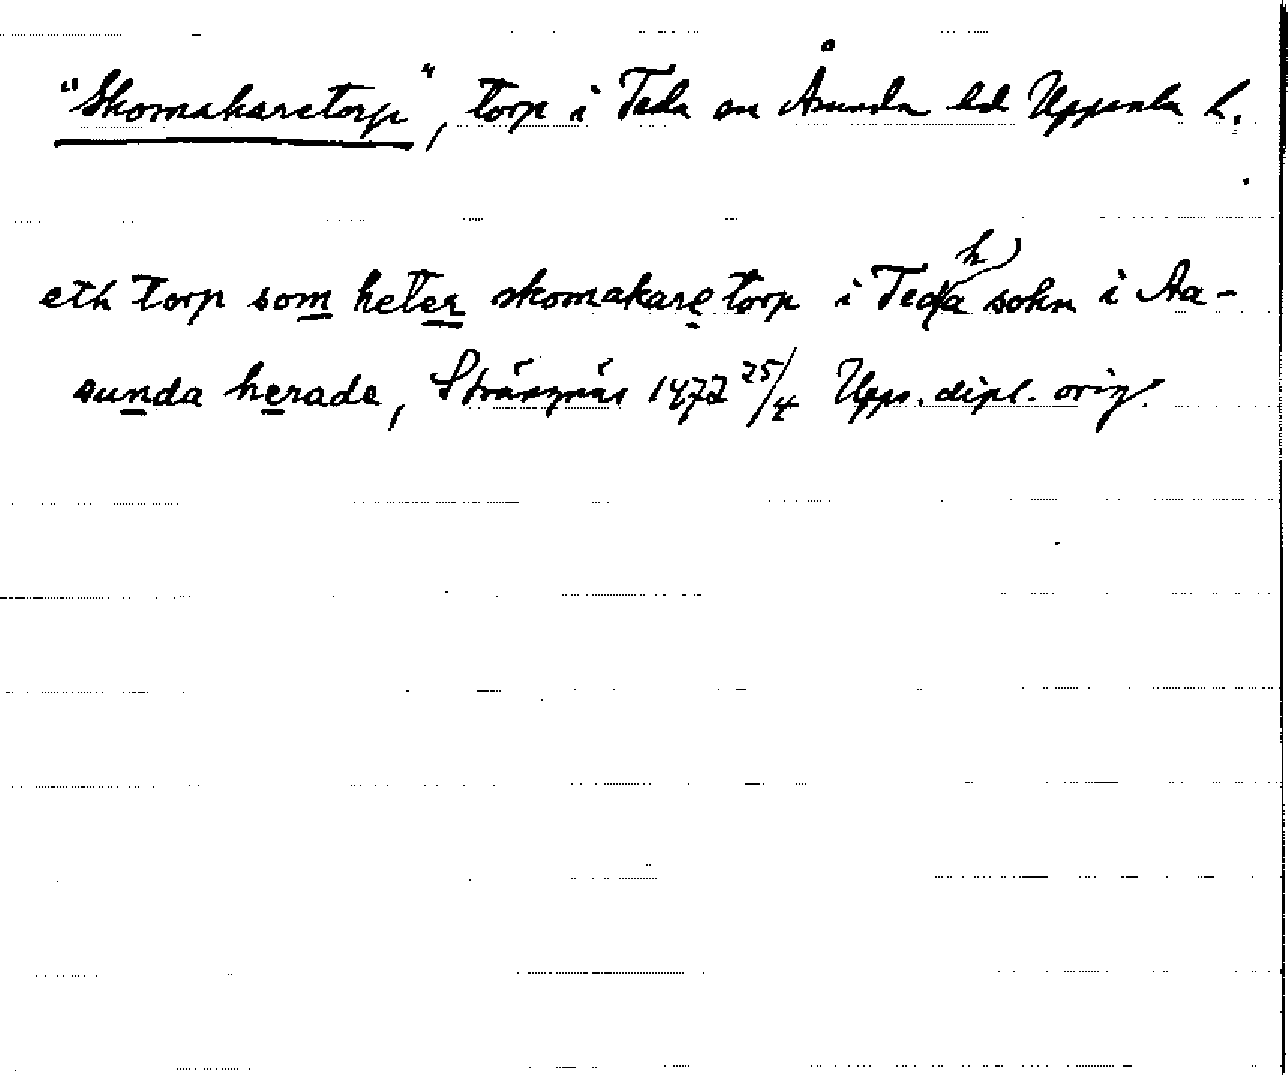 "Skomakaretorp", torp i Teda sn Åsunda hd Uppsala l.
eth torp som heter skomakare torp i Tedha sokn i Aa-
sunda herade, Strängnäs 1472 25/4 Upps. dipl. orig.